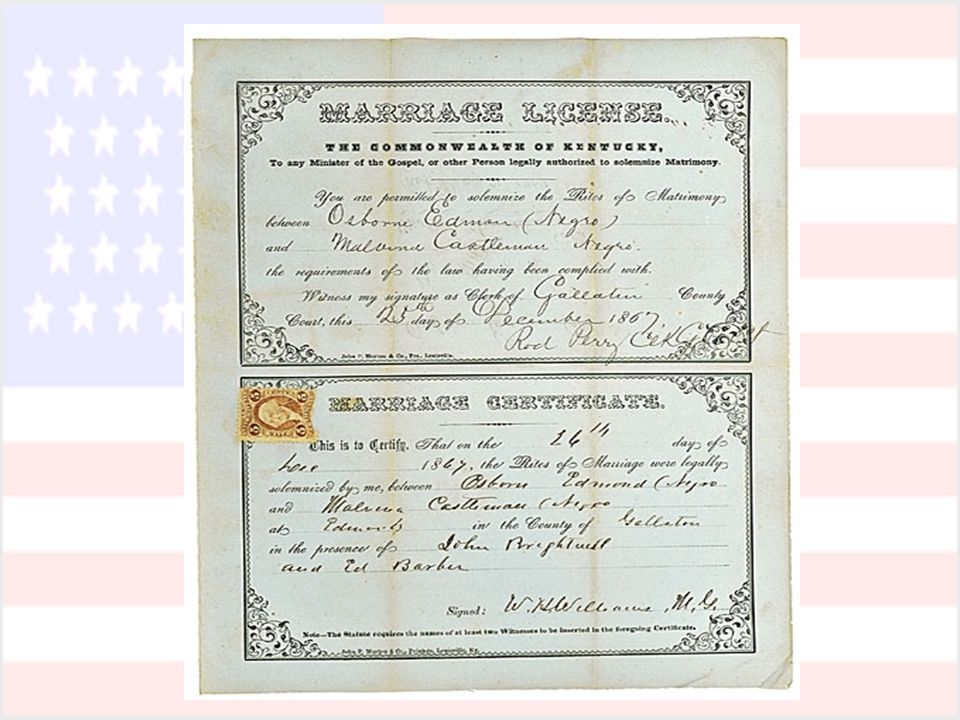 MARRIAGE LICENSE.
THE COMMONWEALTH OF KENTUCKY,
To any Minister of the Gospel, or other Person legally authorized to solemnize Matrimony.
You are permitted to solemnize the Rites of Matrimony
between Osborne Edmon (Negro)
and Malvina Castleman Negro.
the requirements of the law having been complied with.
Witness my signature as Clerk of Gallatin County
Court, this 25th day of December 1867
Rod Perry Clk
John P. Morton & Co., Pro., Louisville.
MARRIAGE CERTIFICATE.
This is to Certify, That on the 26th day of
Dec 1867, the Rites of Marriage were legally
solemnized by me, between Osborn Edmond (Negro
and Malvina Castleman (Negro
at Edmonds in the County of Gallaton
in the presence of John Brightwell
and Ed Barber
Signed: W. H Williams, M, G.
Note—The Statute requires the names of at least two Witnesses to be inserted in the foregoing Certificate.
John P. Morton & Co., Printers, Louisville, Ky.
5 5
5 5